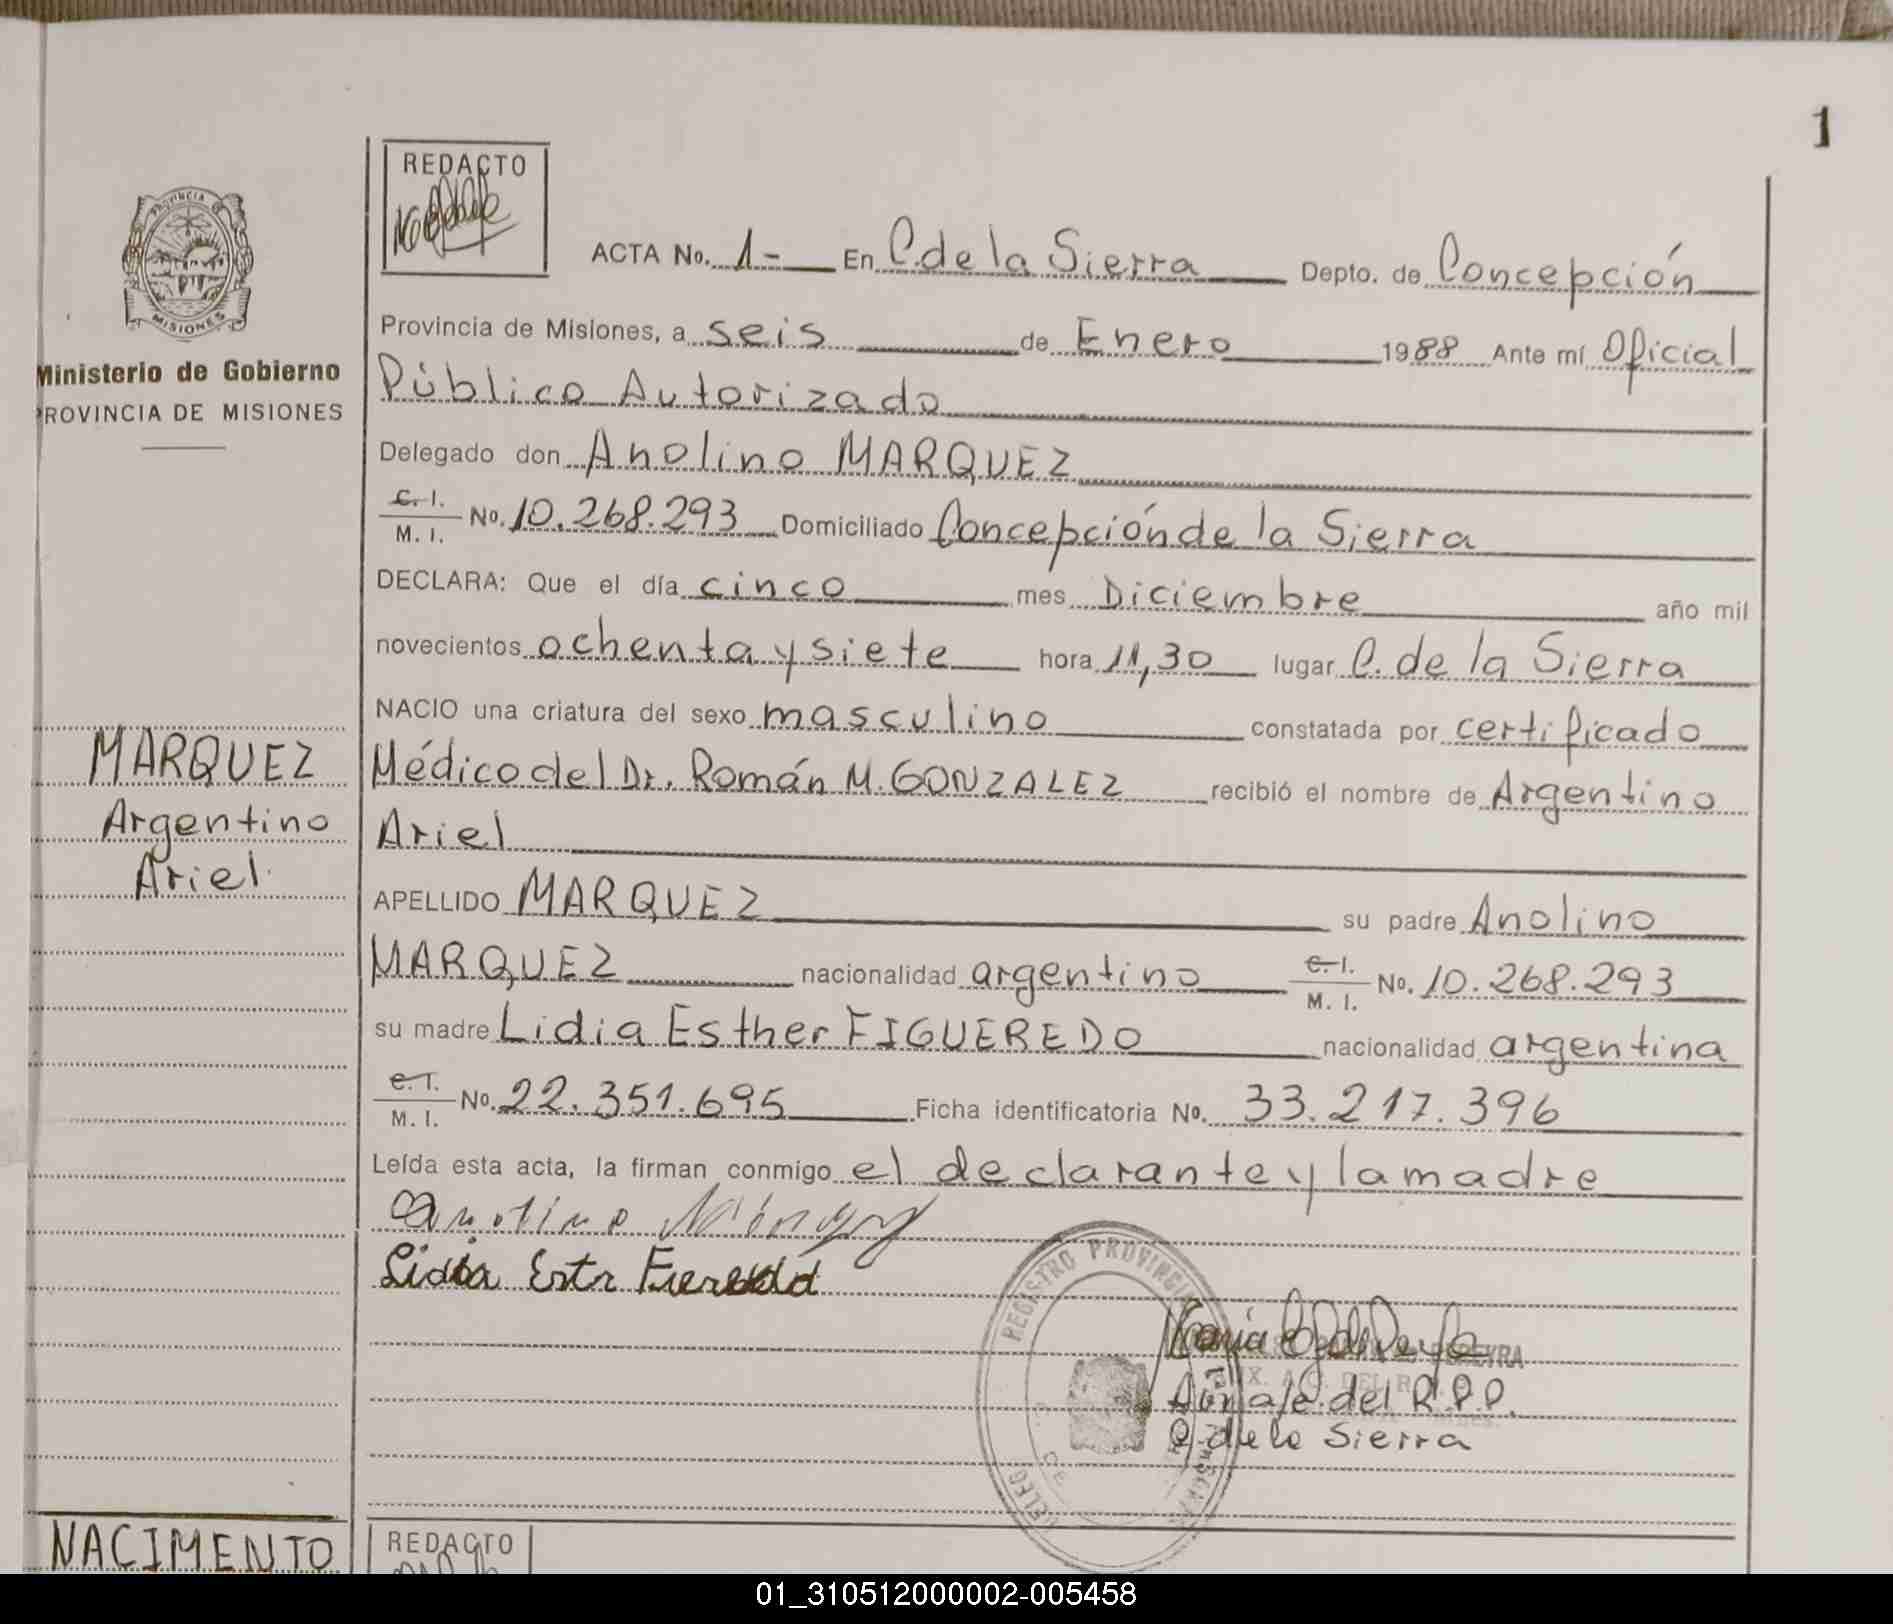 1
REDACTO
PROVINCIA
MISIONES
Ministerio de Gobierno
PROVINCIA DE MISIONES
ACTA No. 1- En C. de la Sierra Depto. de Concepción
Provincia de Misiones, a seis de Enero 1988 Ante mí Oficial
Público Autorizado
Delegado don Anolino MARQUEZ
C. I. M. I. No. 10.268.293 Domiciliado Concepción de la Sierra
DECLARA: Que el día cinco mes Diciembre año mil
novecientos ochenta y siete hora 11,30 lugar C. de la Sierra
NACIO una criatura del sexo masculino constatada por certificado
Médico del Dr. Román M. GONZALEZ recibió el nombre de Argentino
Ariel
MARQUEZ
Argentino
Ariel
APELLIDO MARQUEZ su padre Anolino
MARQUEZ nacionalidad argentino C. I. M. I. No. 10.268.293
su madre Lidia Esther FIGUEREDO nacionalidad argentina
C. I. M. I. No. 22.351.695 Ficha identificatoria No. 33.217.396
Leída esta acta, la firman conmigo el declarante y la madre
Lidia
REGISTRO PROVINCIAL
PEREYRA
del R.P.P.
C. de la Sierra
NACIMENTO
REDACTO
01_310512000002-005458